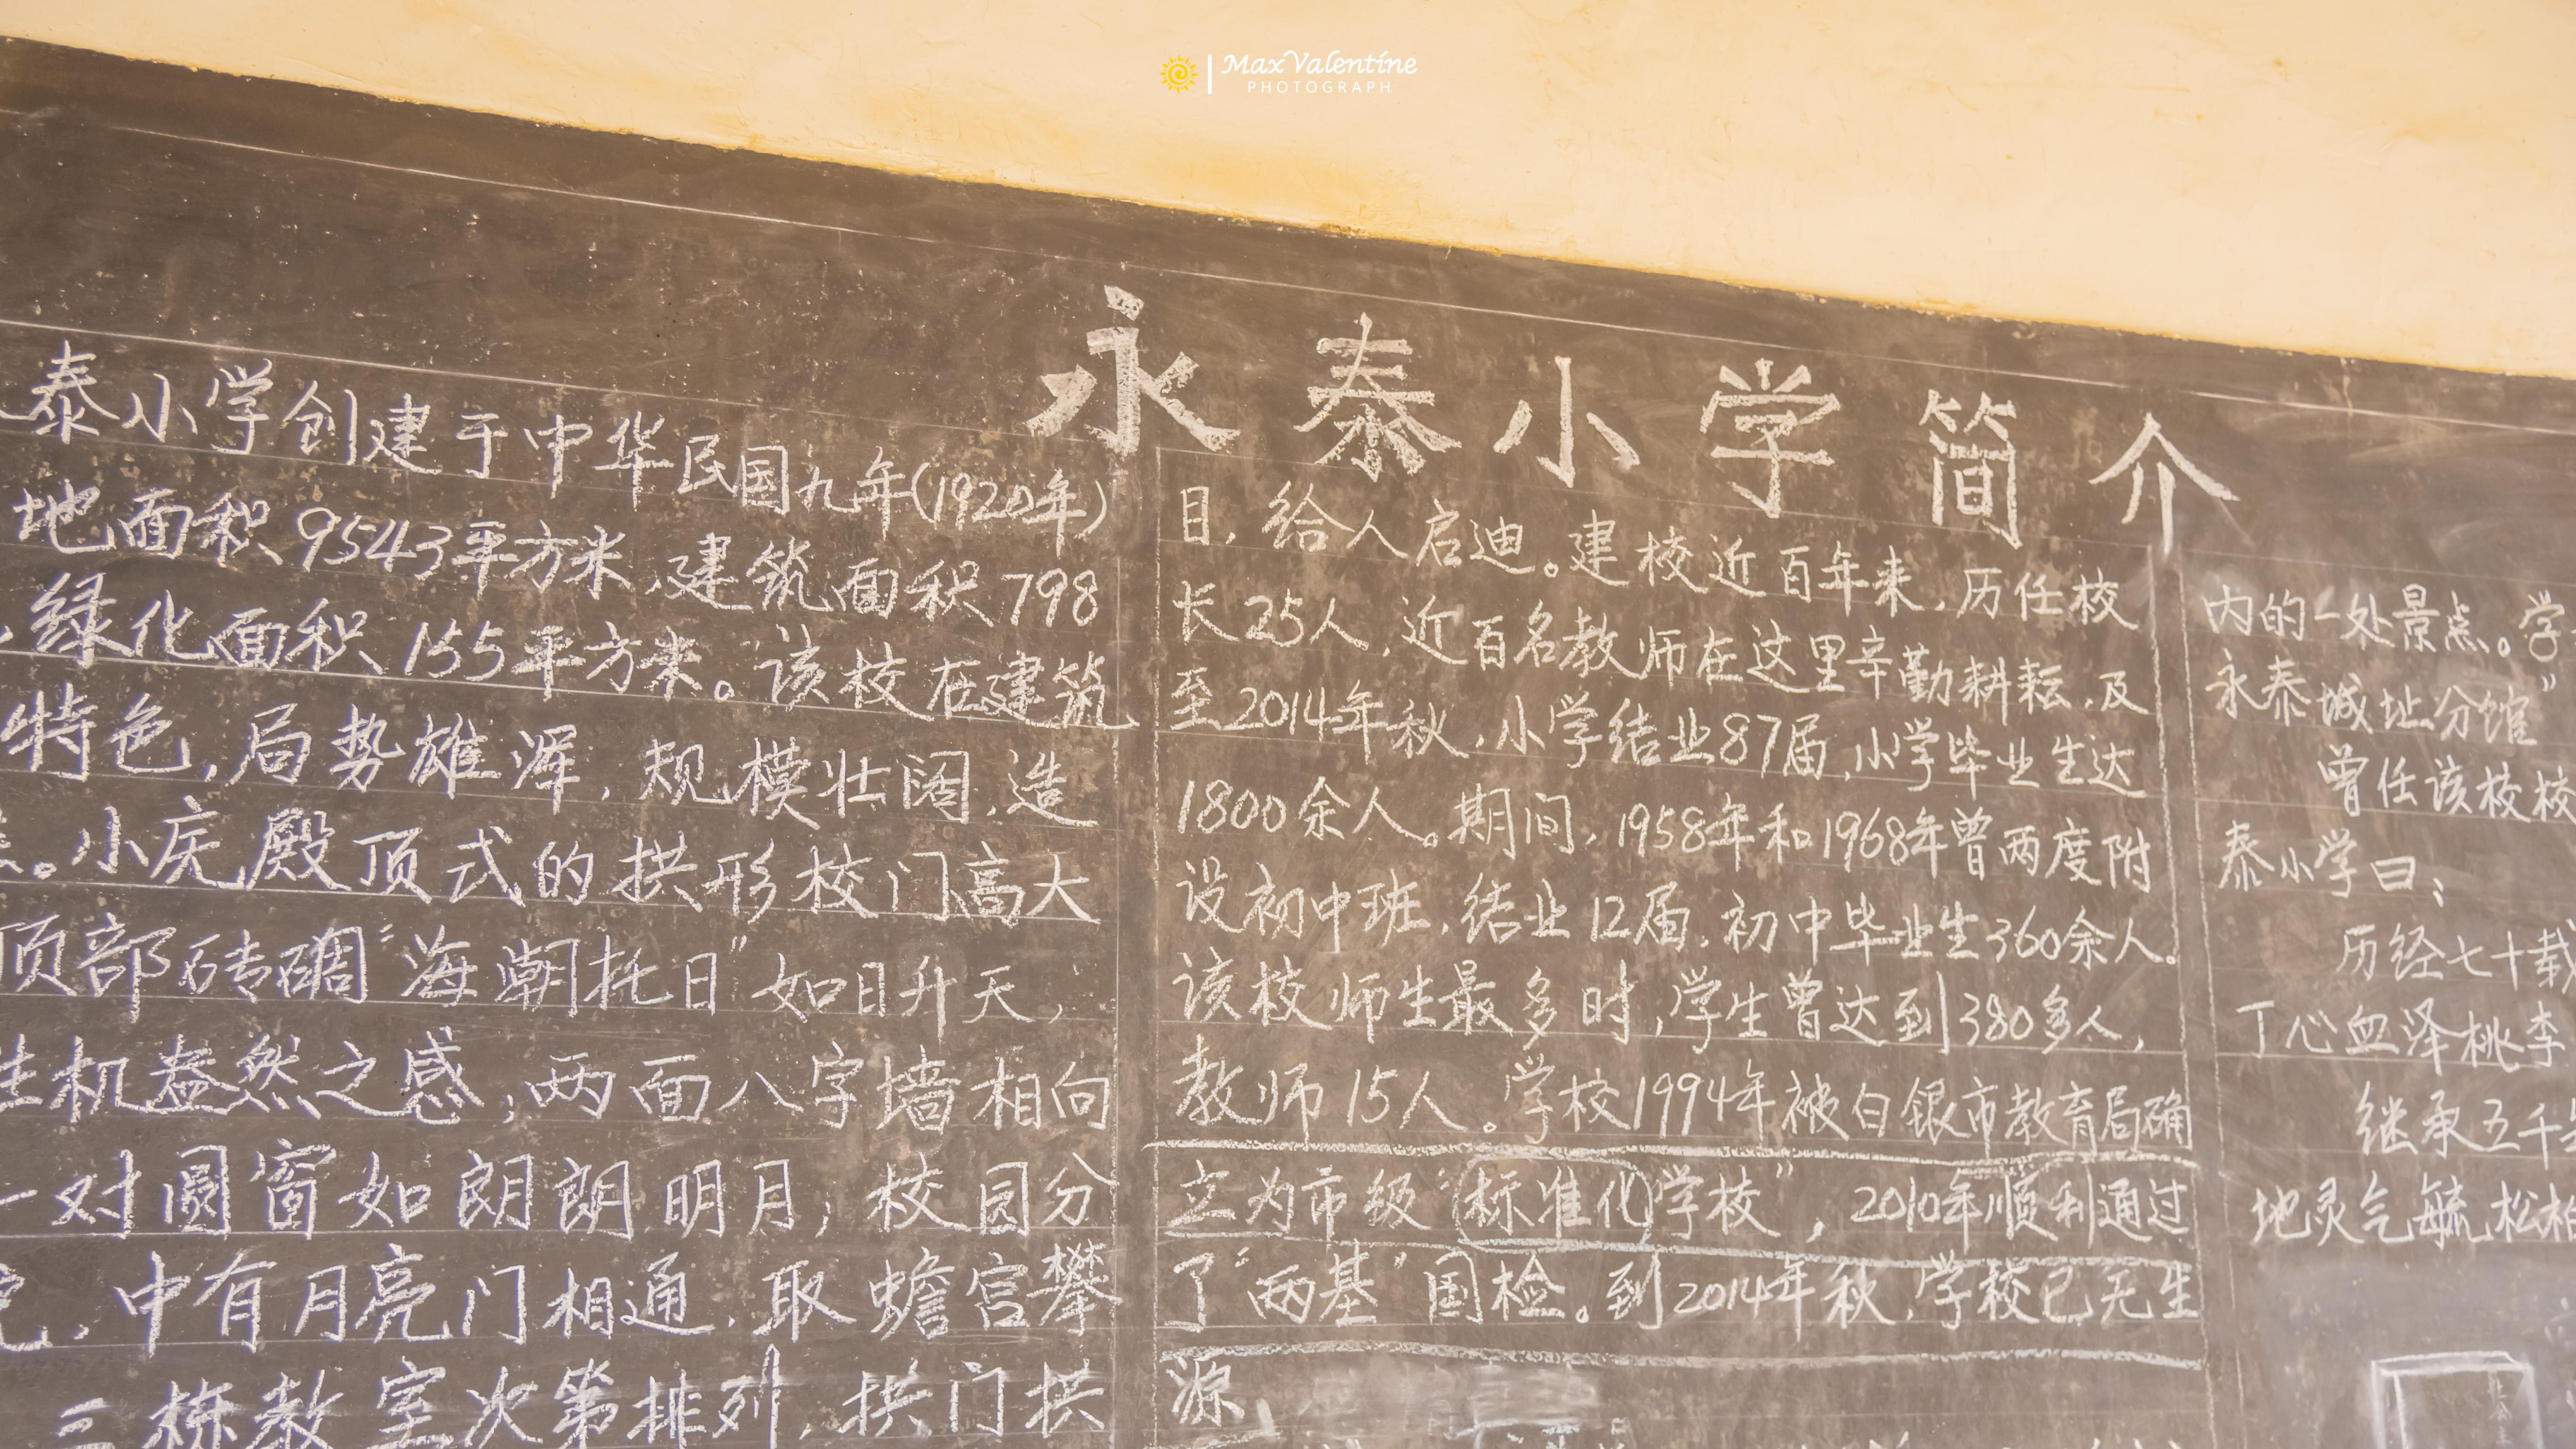 Max Valentine
PHOTOGRAPH
永泰小学简介
泰小学创建于中华民国九年(1920年)
地面积9543平方米,建筑面积798
绿化面积155平方米。该校在建筑
特色,局势雄浑,规模壮阔,造
。小庆殿顶式的拱形校门高大
顶部砖碉“海潮托日”如日升天,
生机盎然之感;两面八字墙相向
一对圆窗如朗朗明月;校园分
,中有月亮门相通,取蟾宫攀
三栋教室次第排列,拱门拱
目,给人启迪。建校近百年来,历任校
长25人,近百名教师在这里辛勤耕耘,及
至2014年秋,小学结业87届,小学毕业生达
1800余人。期间,1958年和1968年曾两度附
设初中班,结业12届,初中毕业生360余人。
该校师生最多时,学生曾达到380多人,
教师15人。学校1994年被白银市教育局确
立为市级“标准化学校”,2010年顺利通过
了“两基”国检。到2014年秋,学校已无生
源
内的一处景点。学
永泰城址分馆”
曾任该校校
泰小学曰:
历经七十载
丁心血泽桃李
继承五千
地灵气毓松柏